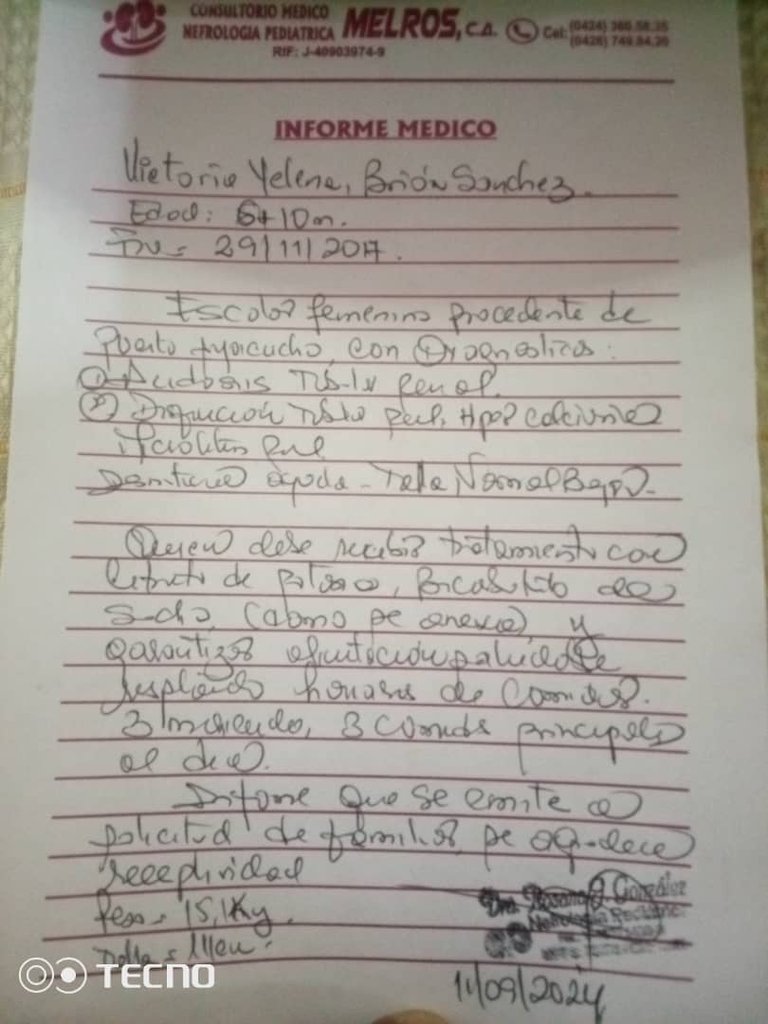 CONSULTORIO MEDICO
NEFROLOGIA PEDIATRICA MELROS, C.A. Cel:
RIF: J-40903974-9
INFORME MEDICO
Victoria Yelena, Brión Sanchez.
Edad: 6a 10m.
FN = 29/11/2017.
Escolar femenino procedente de
Puerto Ayacucho, con Diagnosticos:
① Acidosis Tub-lar Renal.
② Disfunción Hiper calciurica
aguda - Talla Normal Baja
Quien debe recibir tratamiento con
Citrato de potasio, Bicarbonato de
Sodio, (como se anexa), y
garantizar alimentación
horarios de comidas.
3 meriendas, 3 comidas principales
al dia.
Informe que se emite a
solicitud de familiar, se agradece
receptividad
Peso = 15,1Kg.
Talla = 111cm.
Dra. González
Nefrología
11/09/2024
TECNO